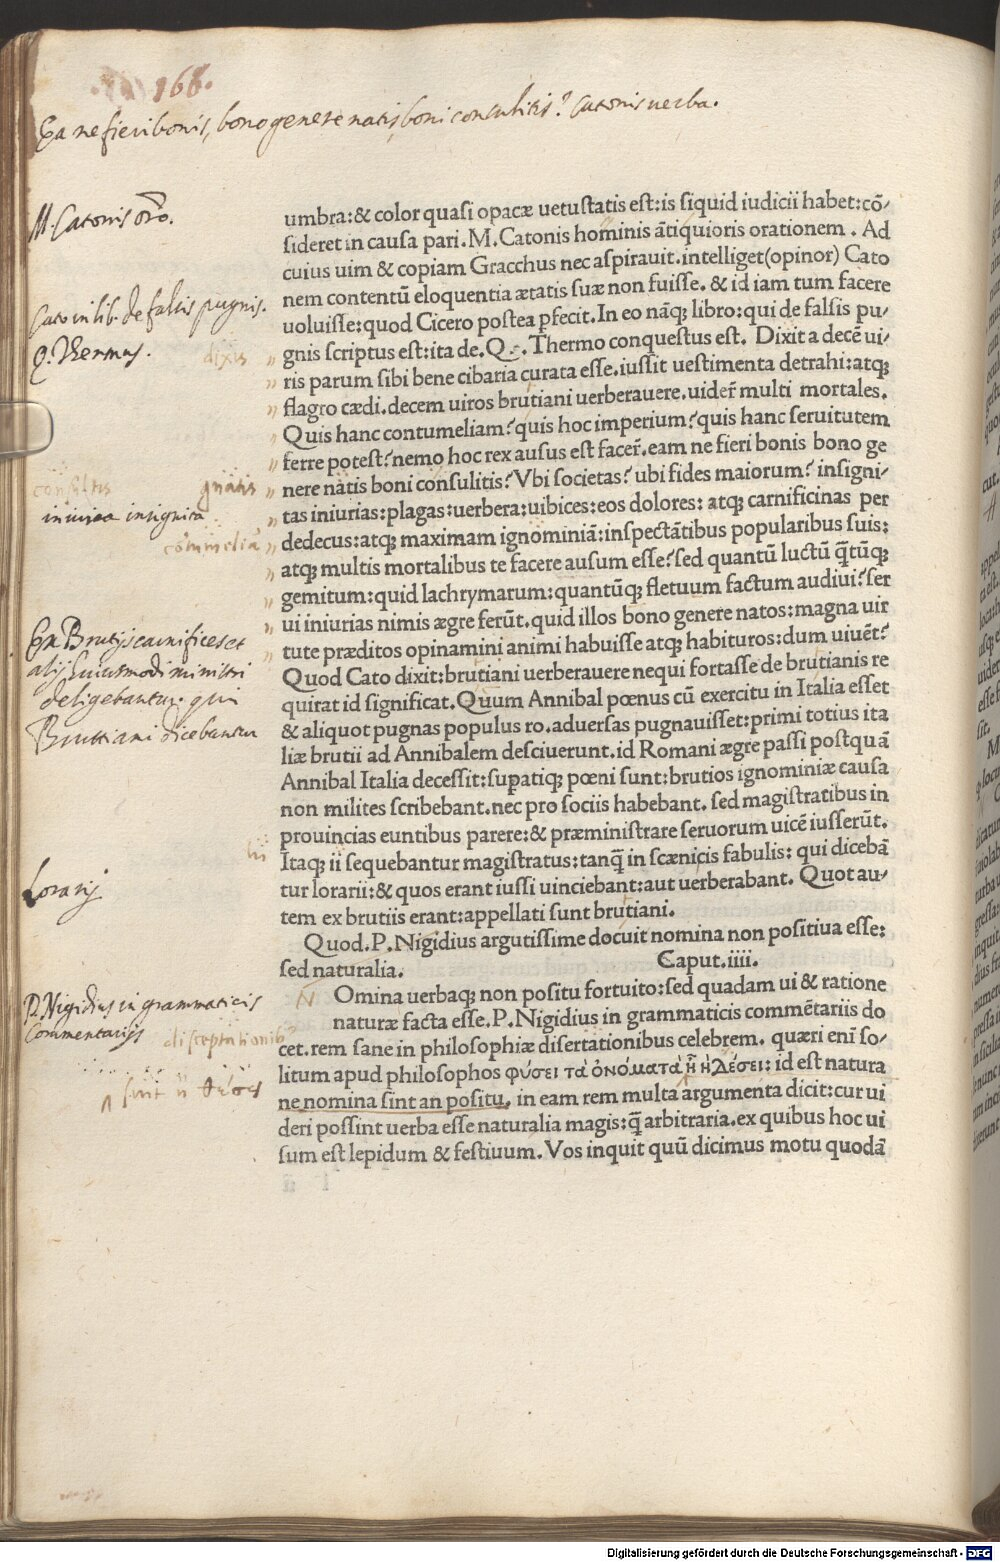 166.
Ea ne fieri bonis, bono genere natis, boni consulitis? Catonis uerba.
M. Catonis oro.
Cato in lib. de falsis pugnis.
Q. Thermus.
dixit
consultis gnatis
iniuria insignita
commelia
Ex Brutijs carnifices et
alij huiusmodi ministri
deligebantur. qui
Bruttiani dicebantur
hi
Lorarij
P. Nigidius in grammaticis
Commentarijs
disceptationib
sint ἢ θέσει
umbra:& color quasi opacæ uetustatis est:is siquid iudicii habet:cō-
sideret in causa pari.M.Catonis hominis ātiquioris orationem . Ad
cuius uim & copiam Gracchus nec aspirauit.intelliget(opinor) Cato
nem contentū eloquentia ætatis suæ non fuisse. & id iam tum facere
uoluisse:quod Cicero postea pfecit.In eo nāq; libro:qui de falsis pu-
gnis scriptus est:ita de.Q . Thermo conquestus est. Dixit a decē ui-
ris parum sibi bene cibaria curata esse.iussit uestimenta detrahi:atq;
flagro cædi.decem uiros brutiani uerberauere.uider̃ multi mortales.
Quis hanc contumeliam?quis hoc imperium?quis hanc seruitutem
ferre potest?nemo hoc rex ausus est facer̃.eam ne fieri bonis bono ge
nere natis boni consulitis?Vbi societas? ubi fides maiorum? insigni-
tas iniurias:plagas:uerbera:uibices:eos dolores: atq; carnificinas per
dedecus:atq; maximam ignominiā:inspectātibus popularibus suis:
atq; multis mortalibus te facere ausum esse?sed quantū luctū q̄tūq;
gemitum:quid lachrymarum:quantūq; fletuum factum audiui?ser
ui iniurias nimis ægre ferūt.quid illos bono genere natos:magna uir
tute præditos opinamini animi habuisse atq; habituros:dum uiuēt?
Quod Cato dixit:brutiani uerberauere nequi fortasse de brutianis re
quirat id significat.Quum Annibal pœnus cū exercitu in Italia esset
& aliquot pugnas populus ro.aduersas pugnauisset:primi totius ita
liæ brutii ad Annibalem desciuerunt.id Romani ægre passi postquā
Annibal Italia decessit:supatiq; pœni sunt:brutios ignominiæ causa
non milites scribebant.nec pro sociis habebant. sed magistratibus in
prouincias euntibus parere:& præministrare seruorum uicē iusserūt.
Itaq; ii sequebantur magistratus:tanq̄ in scænicis fabulis: qui dicebā
tur lorarii:& quos erant iussi uinciebant:aut uerberabant. Quot au-
tem ex brutiis erant:appellati sunt brutiani.
Quod.P.Nigidius argutissime docuit nomina non positiua esse:
sed naturalia. Caput.iiii.
N Omina uerbaq; non positu fortuito:sed quadam ui & ratione
naturæ facta esse.P.Nigidius in grammaticis commētariis do
cet.rem sane in philosophiæ disertationibus celebrem. quæri enī so-
litum apud philosophos φύσει τὰ ὀνόματα ἢ ἢ Δέσει: id est natura
ne nomina sint an positu. in eam rem multa argumenta dicit:cur ui
deri possint uerba esse naturalia magis:q̄ arbitraria.ex quibus hoc ui
sum est lepidum & festiuum. Vos inquit quū dicimus motu quodā
Digitalisierung gefördert durch die Deutsche Forschungsgemeinschaft - DFG